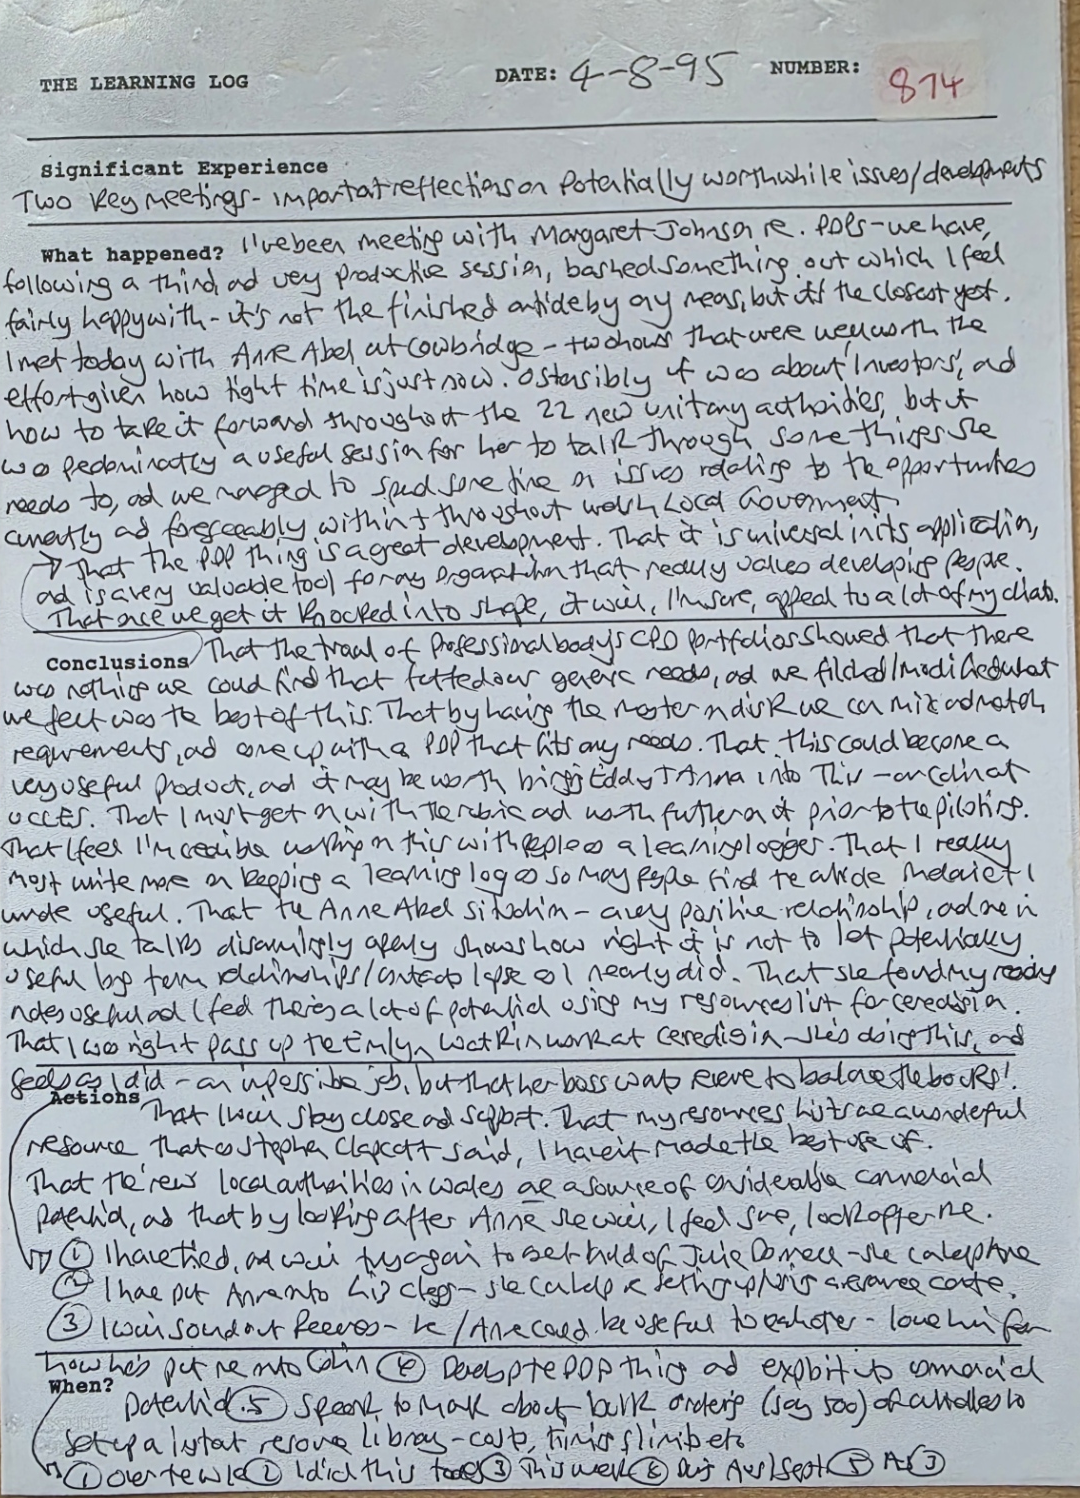 THE LEARNING LOG
DATE: 4-8-95
NUMBER: 874
Significant Experience
Two key meetings - important reflections on potentially worthwhile issues/developments
What happened? I've been meeting with Margaret Johnson re. PDPs - we have,
following a third, and very productive session, bashed something out which I feel
fairly happy with - it's not the finished article by any means, but it's the closest yet.
I met today with Anne Abel at Cowbridge - two hours that were well worth the
effort given how tight time is just now. Ostensibly it was about 'Investors', and
how to take it forward throughout the 22 new unitary authorities, but it
was predominately a useful session for her to talk through some things she
needs to, and we managed to spend some time on issues relating to the opportunities
currently and foreseeably within + throughout Welsh Local Government.
→ That the PDP thing is a great development. That it is universal in its application,
and is a very valuable tool for any organisation that really values developing people.
That once we get it knocked into shape, it will, I'm sure, appeal to a lot of my clients.
Conclusions That the trawl of professional body's CPD portfolios showed that there
was nothing we could find that fitted our generic needs, and we filched/modified what
we felt was the best of this. That by having the master on disk we can mix and match
requirements, and come up with a PDP that fits any needs. That this could become a
very useful product, and it may be worth bringing Eddy + Anna into this -
UCCES. That I must get on with the rubric and work further on it prior to the piloting.
That I feel I'm credible working on this with people as a learning logger. That I really
must write more on keeping a learning log as so many people find the article I
wrote useful. That the Anne Abel situation - a very positive relationship, and one in
which she talks disarmingly openly shows how right it is not to let potentially
useful long term relationships/contacts lapse as I nearly did. That she found my ready
notes useful and I feel there's a lot of potential using my resources list for Ceredigion.
That I was right pass up the Emlyn Watkin work at Ceredigion - she's doing this, and
feels as I did - an impossible job, but that her boss wants revenue to balance the books!
Actions That I will stay close and support. That my resources lists are a wonderful
resource that as Stephen Clapcott said, I haven't made the best use of.
That the new local authorities in Wales are a source of considerable commercial
potential, and that by looking after Anne she will, I feel sure, look after me.
① I have tried, and will try again to get hold of Julie - she can help Anne
② I have put Anne onto Clegg - she could help re setting up a resource centre.
③ I will sound out Reeves - he/Anne could be useful to each other - love him for
how he's put me onto Colin ④ Develop the PDP thing and exploit its commercial
When?
potential. 5 Speak to Mark about bulk orders (say 500) of articles to
set up a resource library - costs, timings, limits etc
① Over the w/e ② I did this today ③ This week ④ During Aug/Sept ⑤ As ③